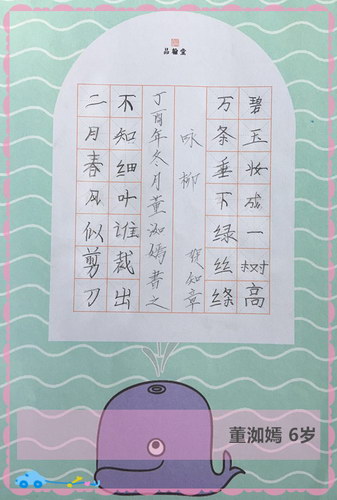 品翰堂
碧玉妆成一树高
万条垂下绿丝绦
咏柳 贺知章
丁酉年冬月董洳嫣书之
不知细叶谁裁出
二月春风似剪刀
董洳嫣 6岁